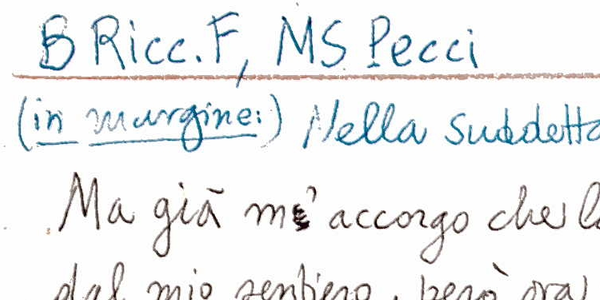 B Ricc. F, MS Pecci
(in margine:) Nella suddetta
Ma già m'accorgo che
dal mio sentiero, però ora